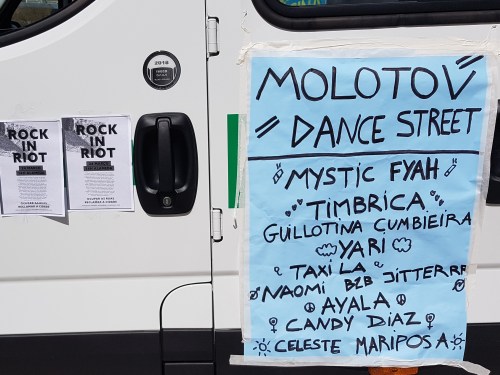 2018
ROCK
IN
RIOT
ROCK
IN
RIOT
MOLOTOV
DANCE STREET
MYSTIC FYAH
TIMBRICA
GUILLOTINA CUMBIEIRA
YARI
TAXI LA
NAOMI B2B JITTERRR
AYALA
CANDY DIAZ
CELESTE MARIPOSA